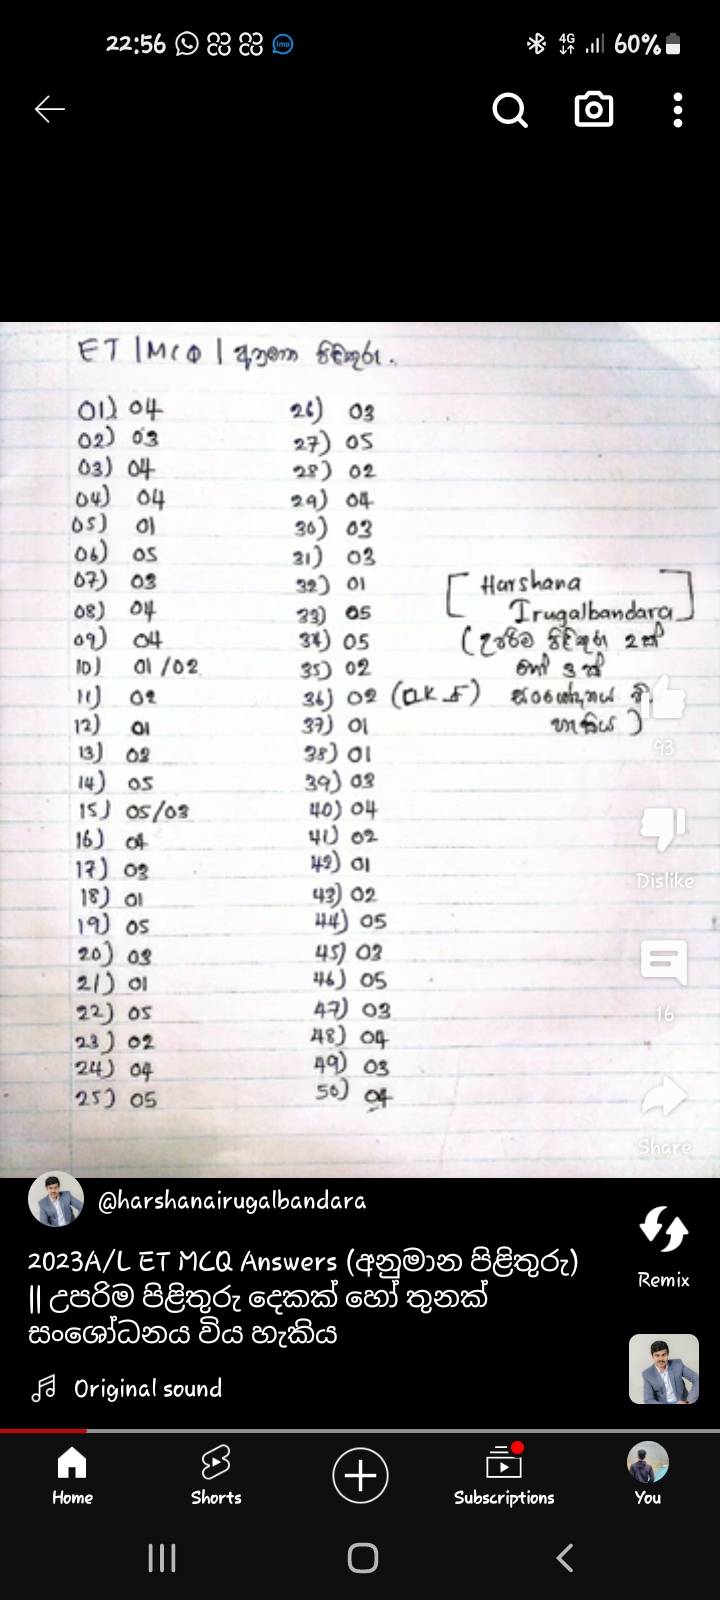 22:56 imo 4G 60%
ET | MCQ | අනුමාන පිළිතුරු.
01) 04
02) 03
03) 04
04) 04
05) 01
06) 05
07) 03
08) 04
09) 04
10) 01/02
11) 02
12) 01
13) 03
14) 05
15) 05/03
16) 04
17) 03
18) 01
19) 05
20) 03
21) 01
22) 05
23) 02
24) 04
25) 05
26) 03
27) 05
28) 02
29) 04
30) 03
31) 03
32) 01
33) 05
34) 05
35) 02
36) 02
37) 01
38) 01
39) 03
40) 04
41) 02
42) 01
43) 02
44) 05
45) 03
46) 05
47) 03
48) 04
49) 03
50) 04
[Harshana
Irugalbandara]
(උපරිම පිළිතුරු 2ක්
හෝ 3ක්
සංශෝධනය වි
හැකිය)
93
Dislike
16
Share
@harshanairugalbandara
2023A/L ET MCQ Answers (අනුමාන පිළිතුරු)
|| උපරිම පිළිතුරු දෙකක් හෝ තුනක්
සංශෝධනය විය හැකිය
Original sound
Remix
Home
Shorts
Subscriptions
You